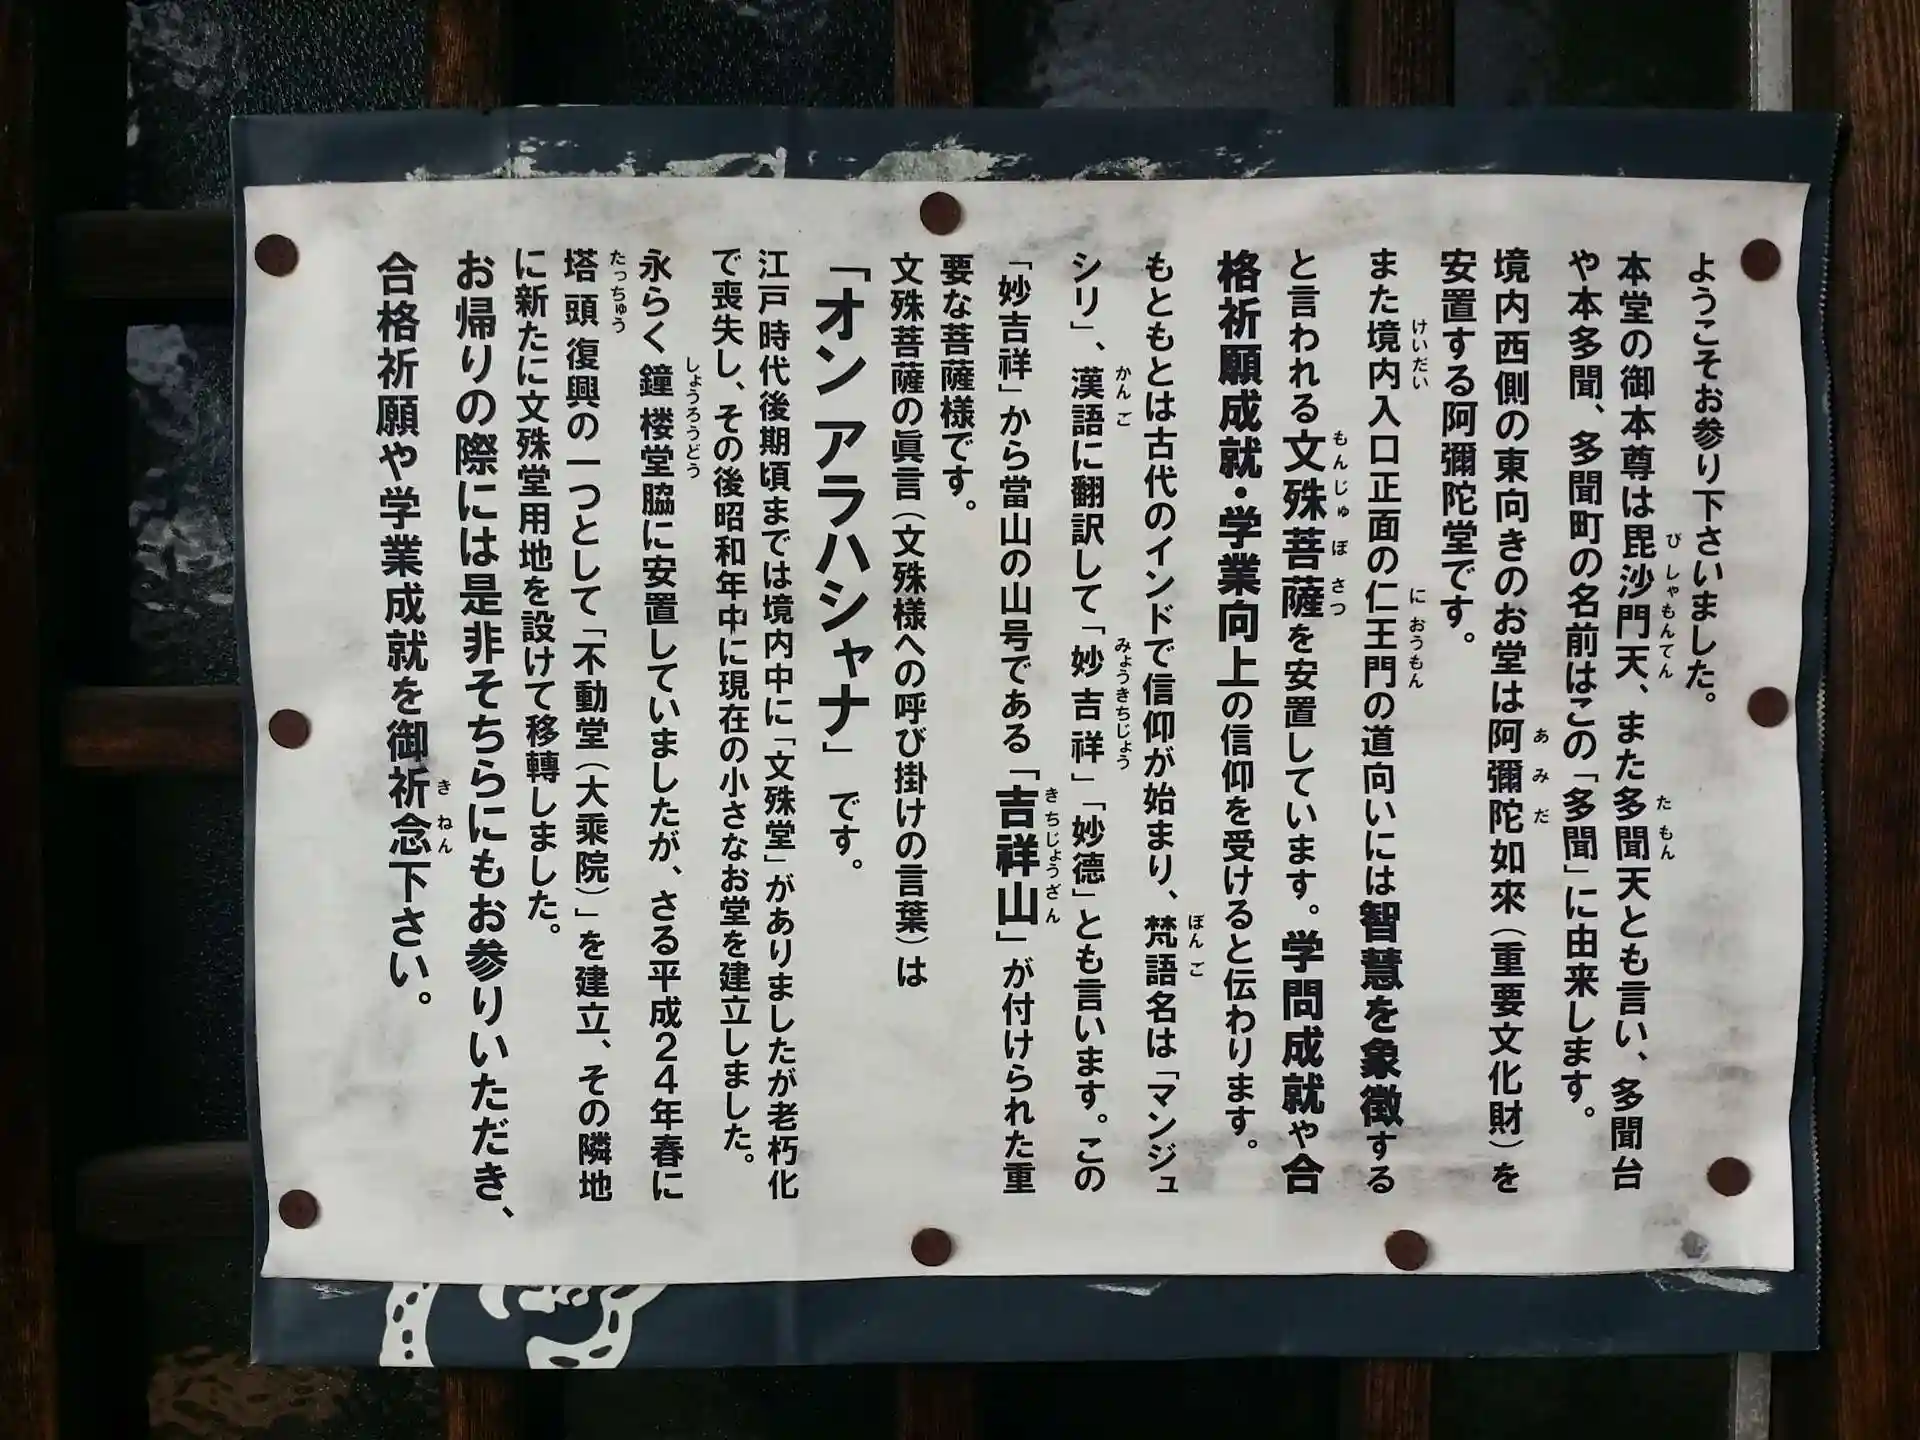 ようこそお参り下さいました。
本堂の御本尊は毘沙門天、また多聞天とも言い、多聞台
や本多聞、多聞町の名前はこの「多聞」に由来します。
境内西側の東向きのお堂は阿彌陀如來（重要文化財）を
安置する阿彌陀堂です。
また境内入口正面の仁王門の道向いには智慧を象徴する
と言われる文殊菩薩を安置しています。学問成就や合
格祈願成就・学業向上の信仰を受けると伝わります。
もともとは古代のインドで信仰が始まり、梵語名は「マンジュ
シリ」、漢語に翻訳して「妙吉祥」「妙徳」とも言います。この
「妙吉祥」から當山の山号である「吉祥山」が付けられた重
要な菩薩様です。
文殊菩薩の眞言（文殊様への呼び掛けの言葉）は
「オン アラハシャナ」です。
江戸時代後期頃までは境内中に「文殊堂」がありましたが老朽化
で喪失し、その後昭和年中に現在の小さなお堂を建立しました。
永らく鐘楼堂脇に安置していましたが、さる平成24年春に
塔頭復興の一つとして「不動堂（大乘院）」を建立、その隣地
に新たに文殊堂用地を設けて移轉しました。
お帰りの際には是非そちらにもお参りいただき、
合格祈願や学業成就を御祈念下さい。